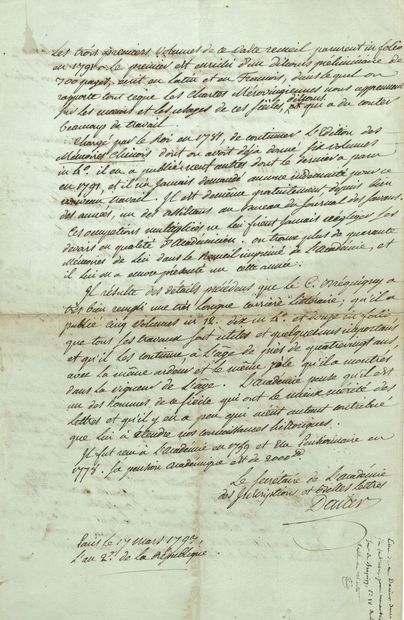 Les trois premiers volumes de ce vaste recueil parurent in folio
en 1791. Le premier est enrichi d'un discours preliminaire de
700 pages, ecrit en latin et en François, dans lequel on
rapporte tout ce que les Chartes Merovingiennes nous apprennent
sur les mœurs et les usages de ces siecles, discours qui a du couter
beaucoup de travail.
Chargé par le Roi en 1781, de continuer l'Edition des
Mémoires Chinois dont on avoit déja donné six volumes
in 4°, il en a publié neuf autres dont le dernier a paru
en 1791, et il n'a jamais demandé aucune indemnité pour ce
travail. Il est demeuré gratuitement depuis bien
des années, un des assistans au bureau du Journal des Savans.
Ces occupations multipliées ne lui firent jamais négliger les
devoirs en qualité d'Academicien. on trouve plus de quarante
Mémoires de lui dans le Recueil imprimé de l'Academie, et
il lui en a encore présenté un cette année.
Il résulte des details précedens que le C. Brequigny a
très bien rempli une très longue carriere litteraire; qu'il a
publié cinq volumes in 12. dix in 4°. et douze in folio
que tous ses travaux sont utiles et quelques uns importans
et qu'il les continue à l'age de près de quatre vingt ans,
avec la même ardeur et le même zèle qu'il a montrés
dans la vigueur de l'age. L'academie pense qu'il est
un des hommes de ce siecle qui ont le mieux merité des
lettres et qu'il y en a peu qui aient autant contribué
que lui à étendre nos connoissances historiques.
Il fut reçu à l'Academie en 1759 et Elu Pensionnaire en
1772. sa pension academique est de 2000 #
Le Secrétaire de l'academie
des Inscriptions et Belles Lettres
Dacier
Paris le 17 Mars 1793,
L'an 2e. de la République.